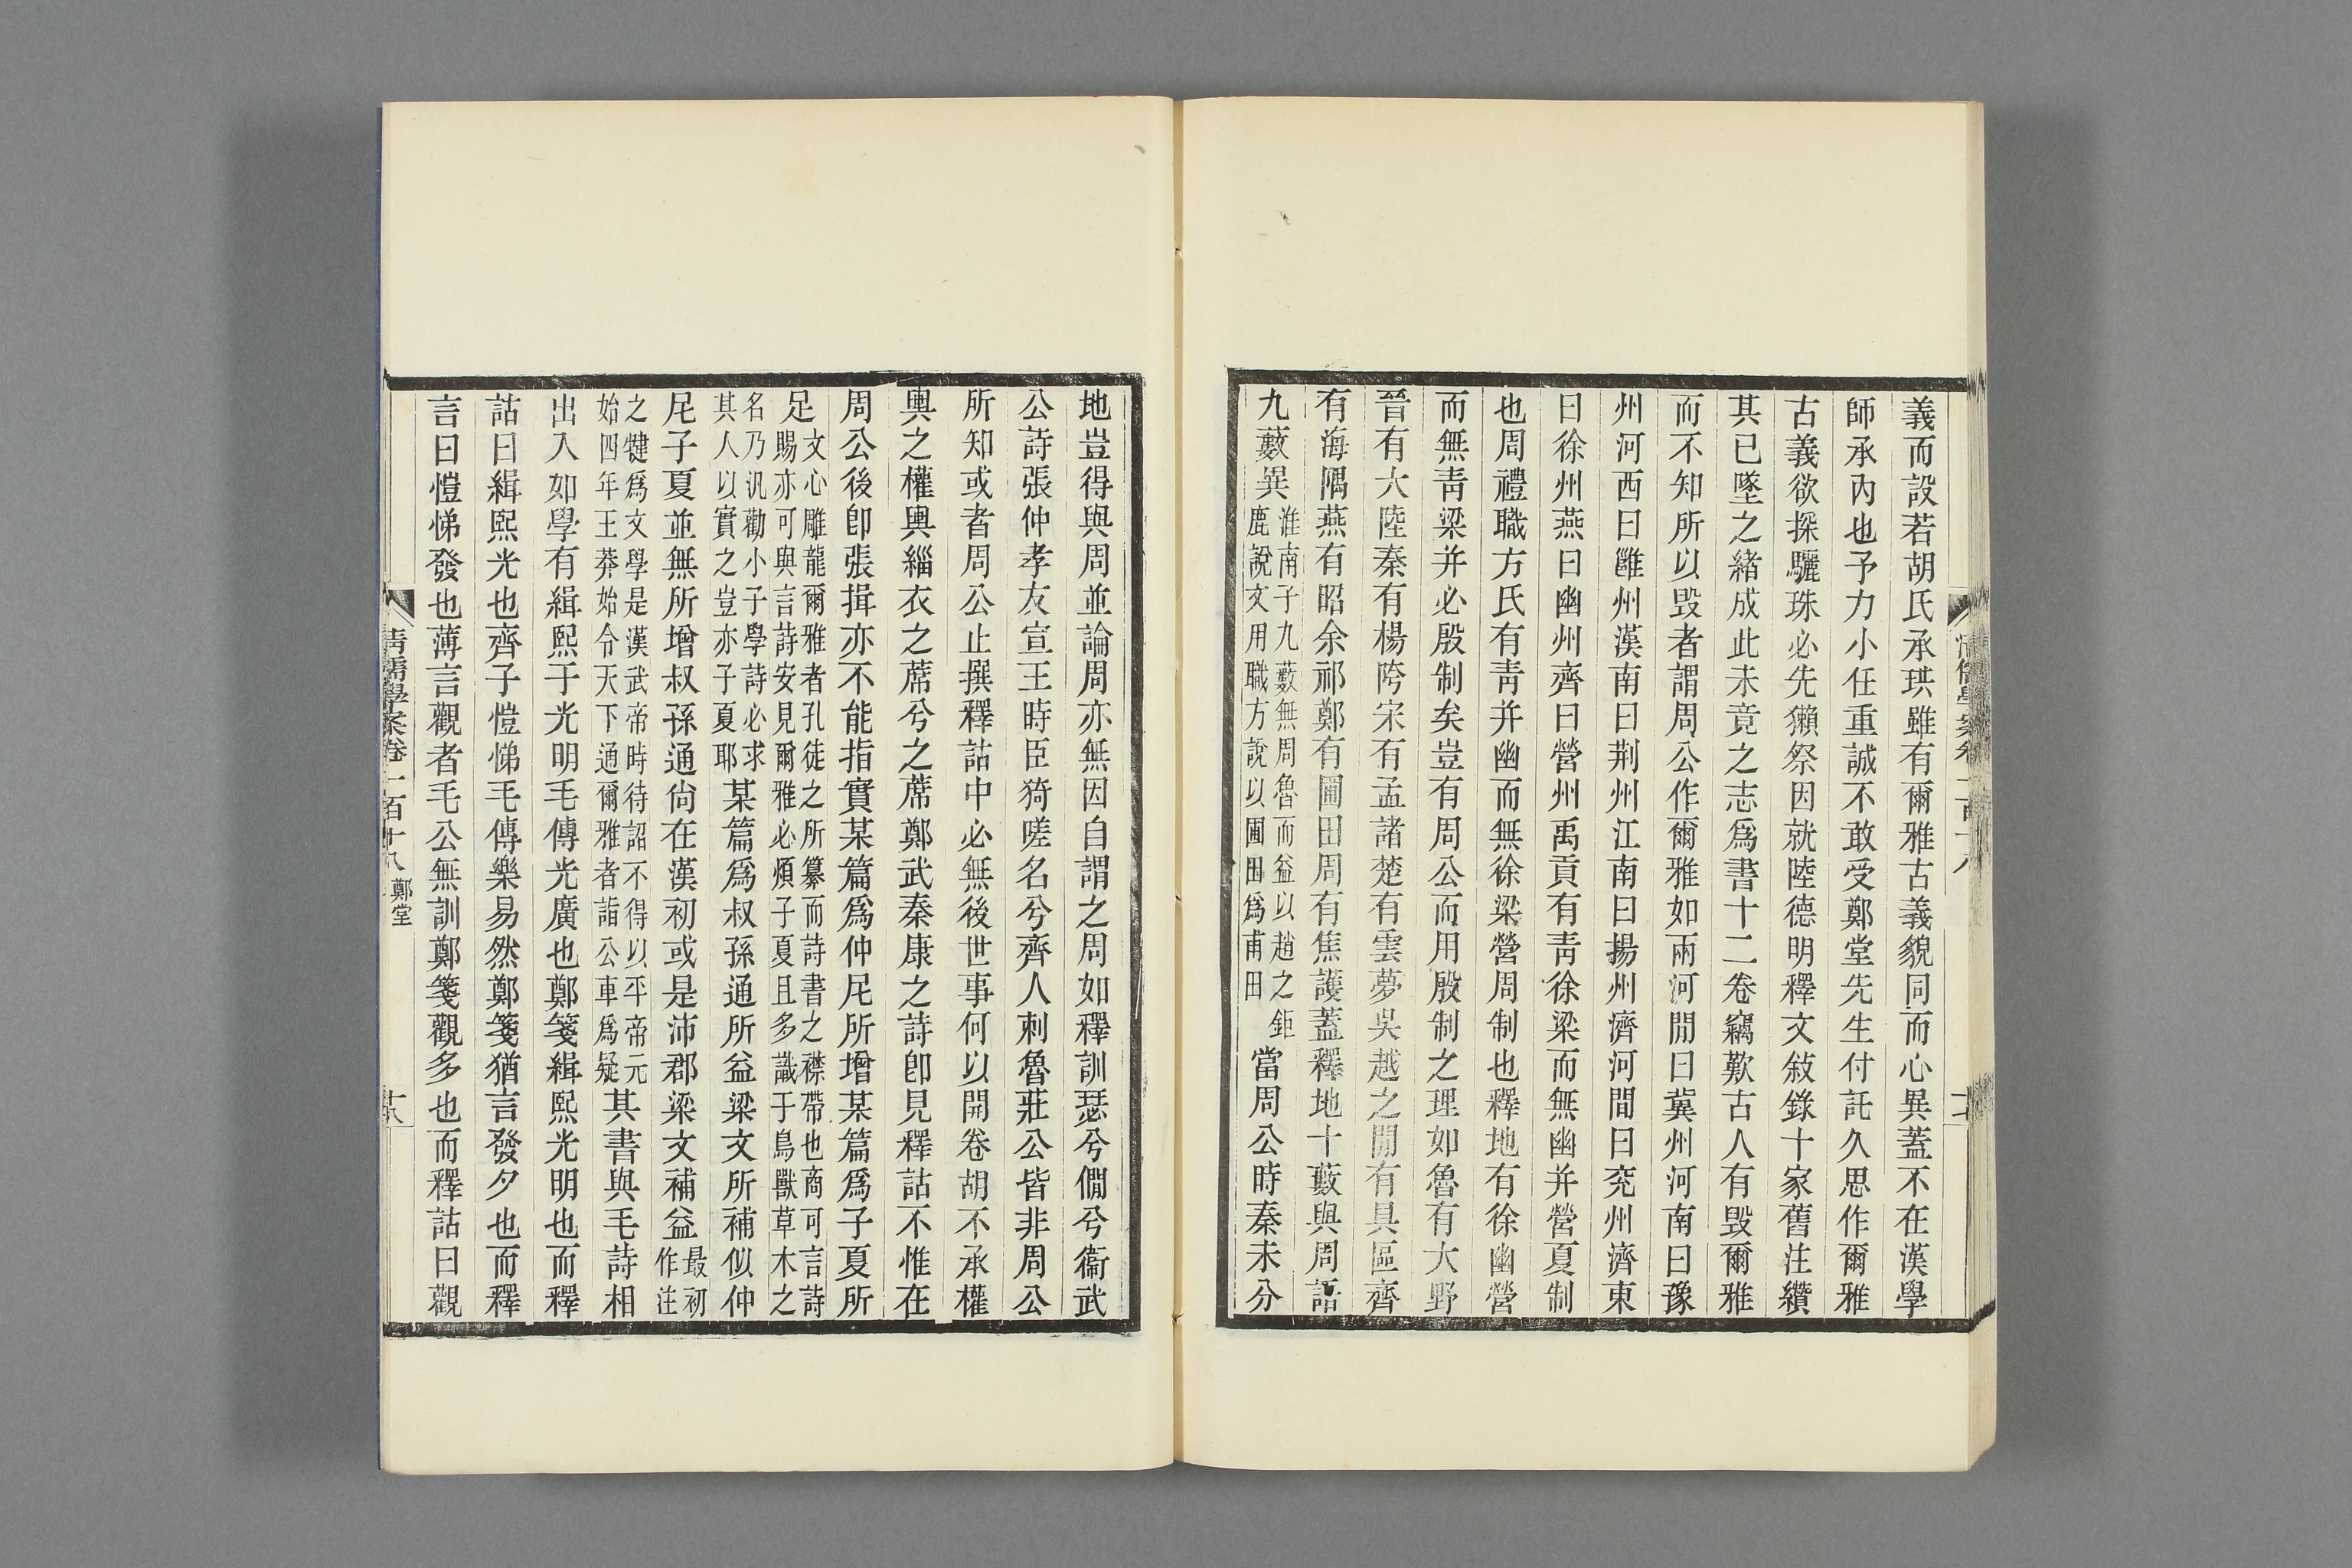 義而設若胡氏承珙雖有爾雅古義貌同而心異蓋不在漢學
師承內也予力小任重誠不敢受鄭堂先生付託久思作爾雅
古義欲探驪珠必先獺祭因就陸德明釋文敍錄十家舊注纘
其已墜之緒成此未竟之志爲書十二卷竊歎古人有毀爾雅
而不知所以毀者謂周公作爾雅如兩河閒曰冀州河南曰豫
州河西曰雝州漢南曰荆州江南曰揚州濟河間曰兖州濟東
曰徐州燕曰幽州齊曰營州禹貢有青徐梁而無幽并營夏制
也周禮職方氏有青并幽而無徐梁營周制也釋地有徐幽營
而無青梁并必殷制矣豈有周公而用殷制之理如魯有大野
晉有大陸秦有楊陓宋有孟諸楚有雲夢吳越之閒有具區齊
有海隅燕有昭余祁鄭有圃田周有焦護蓋釋地十藪與周語
九藪異淮南子九藪無周魯而益以趙之鉅鹿說文用職方說以圃田爲甫田當周公時秦未分
清儒學案卷一百十八
十七
地豈得與周並論周亦無因自謂之周如釋訓瑟兮僩兮衞武
公詩張仲孝友宣王時臣猗嗟名兮齊人刺魯莊公皆非周公
所知或者周公止撰釋詁中必無後世事何以開卷胡不承權
輿之權輿緇衣之蓆兮之蓆鄭武秦康之詩卽見釋詁不惟在
周公後卽張揖亦不能指實某篇爲仲尼所增某篇爲子夏所
足文心雕龍爾雅者孔徒之所纂而詩書之襟帶也商可言詩賜亦可與言詩安見爾雅必煩子夏且多識于鳥獸草木之
名乃汎勸小子學詩必求其人以實之豈亦子夏耶某篇爲叔孫通所益梁文所補似仲
尼子夏並無所增叔孫通尙在漢初或是沛郡梁文補益最初作注
之犍爲文學是漢武帝時待詔不得以平帝元始四年王莽始令天下通爾雅者詣公車爲疑其書與毛詩相
出入如學有緝熙于光明毛傳光廣也鄭箋緝熙光明也而釋
詁曰緝熙光也齊子愷悌毛傳樂易然鄭箋猶言發夕也而釋
言曰愷悌發也薄言觀者毛公無訓鄭箋觀多也而釋詁曰觀
清儒學案卷一百十八 鄭堂
十八